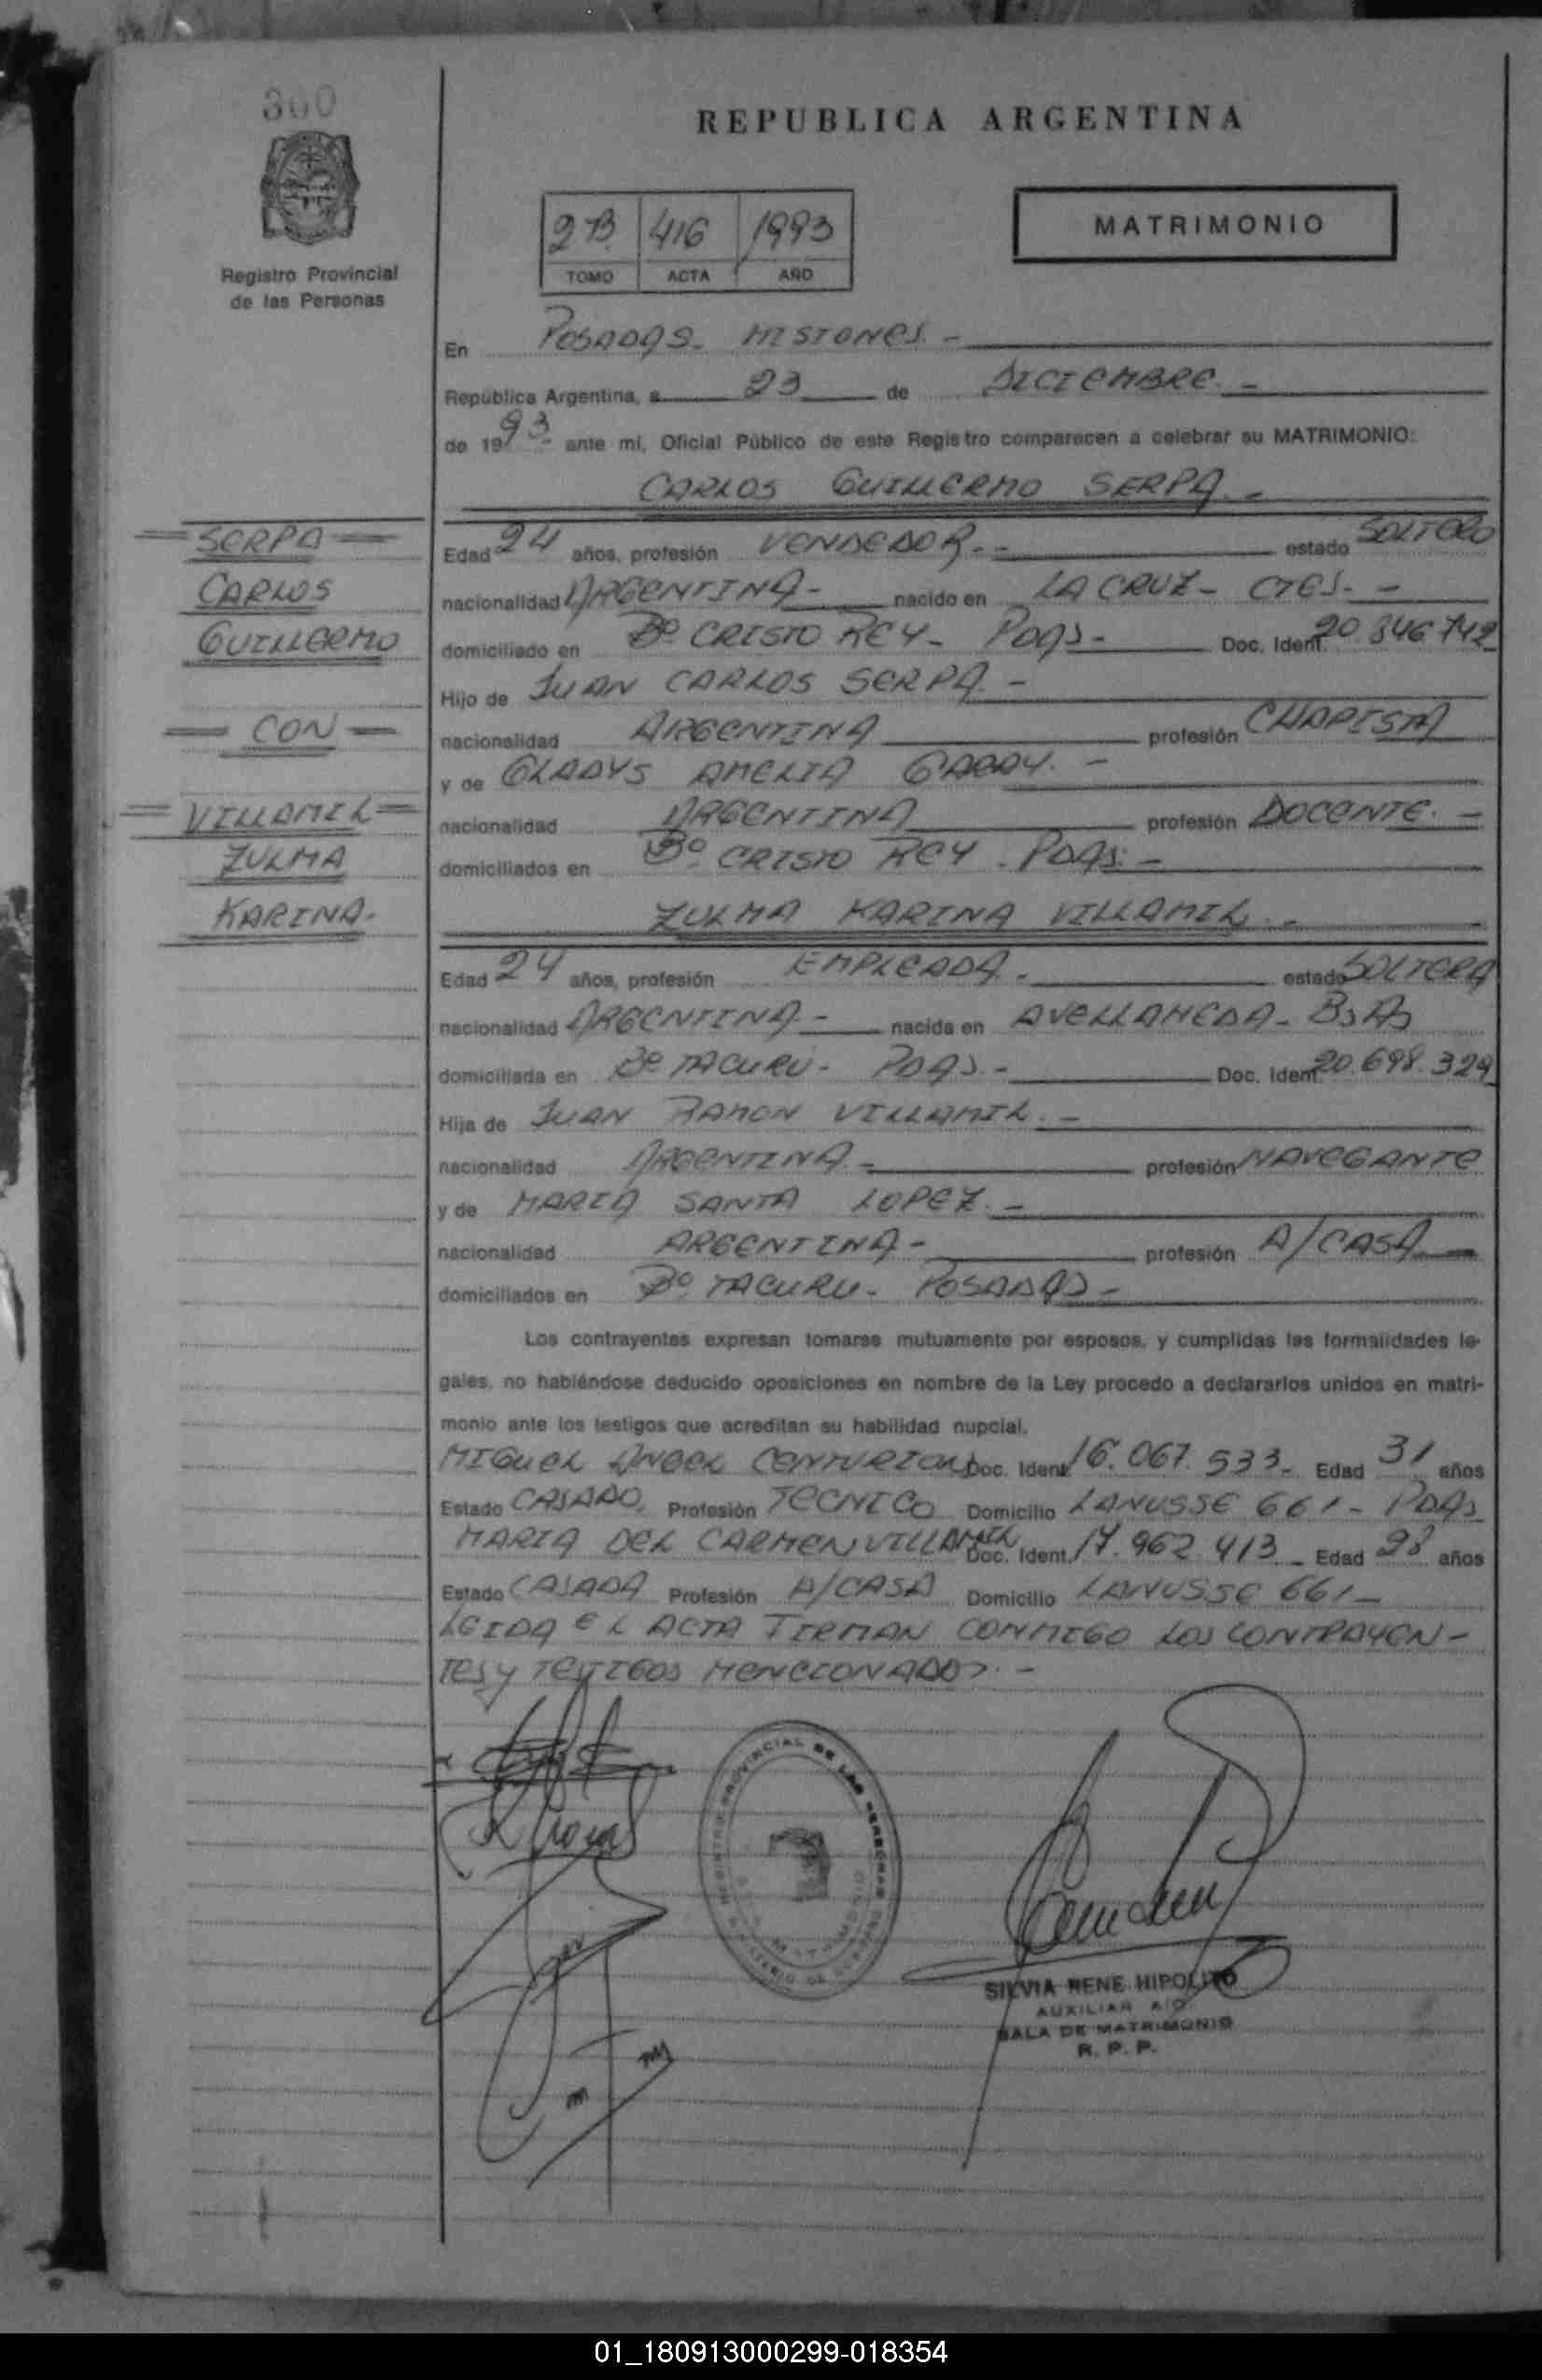 300
REPUBLICA ARGENTINA
Registro Provincial
de las Personas
2B. 416 1993
TOMO ACTA AÑO
MATRIMONIO
En POSADAS - MISIONES. -
República Argentina, a 23 de DICIEMBRE. -
de 1993 - ante mí, Oficial Público de este Registro comparecen a celebrar su MATRIMONIO:
CARLOS GUILLERMO SERPA. -
= SERPA =
CARLOS
GUILLERMO
= CON =
= VILLAMIL =
ZULMA
KARINA-
Edad 24 años, profesión VENDEDOR. - estado SOLTERO
nacionalidad ARGENTINA - nacido en LA CRUZ - CTES. -
domiciliado en Bº CRISTO REY - Pdas - Doc. Ident. 20.346.742
Hijo de JUAN CARLOS SERPA. -
nacionalidad ARGENTINA profesión CHAPISTA
y de GLADYS AMELIA GARAY. -
nacionalidad ARGENTINA profesión DOCENTE. -
domiciliados en Bº CRISTO REY - PDAS. -
ZULMA KARINA VILLAMIL. -
Edad 24 años, profesión EMPLEADA. - estado SOLTERA
nacionalidad ARGENTINA - nacida en AVELLANEDA - Bs As
domiciliada en Bº TACURU - Pdas. - Doc. Ident. 20.698.329
Hija de JUAN RAMON VILLAMIL. -
nacionalidad ARGENTINA - profesión NAVEGANTE
y de MARIA SANTA LOPEZ. -
nacionalidad ARGENTINA - profesión A/CASA
domiciliados en Bº TACURU - POSADAS -
Los contrayentes expresan tomarse mutuamente por esposos, y cumplidas las formalidades le-
gales, no habiéndose deducido oposiciones en nombre de la Ley procedo a declararlos unidos en matri-
monio ante los testigos que acreditan su habilidad nupcial.
MIGUEL ANGEL CENTURION Doc. Ident. 16.067.533 - Edad 31 años
Estado CASADO. Profesión TECNICO Domicilio LANUSSE 661 - PDAS
MARIA DEL CARMEN VILLAMIL Doc. Ident. 17.962.413 - Edad 28 años
Estado CASADA Profesión A/CASA Domicilio LANUSSE 661 -
LEIDA EL ACTA FIRMAN CONMIGO LOS CONTRAYEN-
TES Y TESTIGOS MENCIONADOS. -
REGISTRO PROVINCIAL DE LAS PERSONAS
SILVIA RENE HIPOLITO
AUXILIAR
SALA DE MATRIMONIO
R. P. P.
01_180913000299-018354